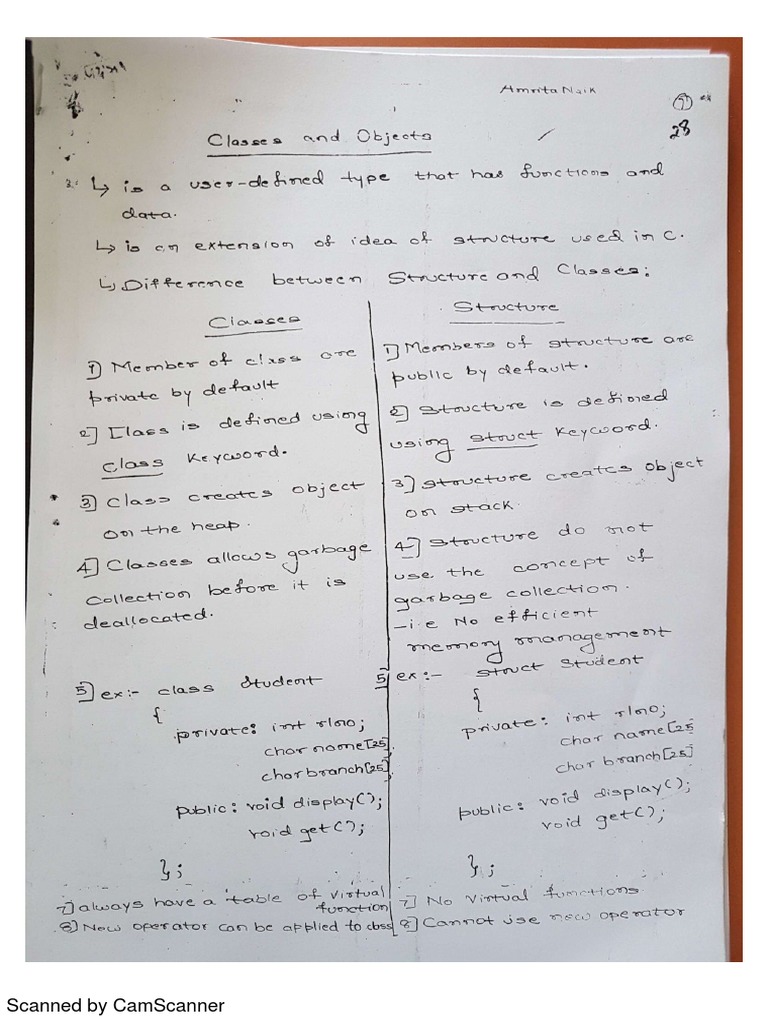 Amrita Naik
28
Classes and Objects
↳ is a user-defined type that has functions and
data.
↳ is an extension of idea of structure used in C.
↳ Difference between Structure and Classes:
Classes
1] Member of class are
private by default
2] Class is defined using
class keyword.
3] Class creates object
on the heap.
4] Classes allows garbage
collection before it is
deallocated.
5] ex:- class Student
{
private: int rlno;
char name[25].
char branch[25]
public: void display();
void get();
};
7] always have a table of virtual
function
8] New operator can be applied to class
Structure
1] Members of structure are
public by default.
2] Structure is defined
using struct keyword.
3] Structure creates object
on stack.
4] Structure do not
use the concept of
garbage collection.
-i.e No efficient
memory management
5] ex:- struct Student
{
private: int rlno;
char name[25
char branch[25]
public: void display();
void get();
};
7] No Virtual functions
8] Cannot use new operator
Scanned by CamScanner